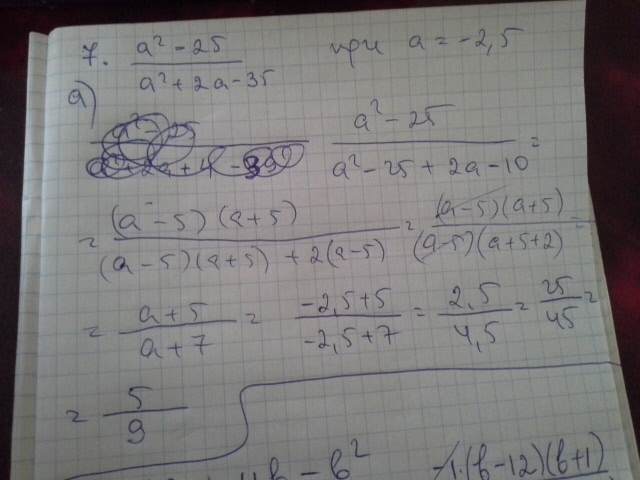 7. (a² - 25)/(a² + 2a - 35) при a = -2,5
a)
(a² - 25)/(a² - 25 + 2a - 10) =
= ((a - 5)(a + 5))/((a - 5)(a + 5) + 2(a - 5)) = ((a - 5)(a + 5))/((a - 5)(a + 5 + 2)) =
= (a + 5)/(a + 7) = (-2,5 + 5)/(-2,5 + 7) = 2,5/4,5 = 25/45 =
= 5/9
- b² -1·(b - 12)(b + 1)